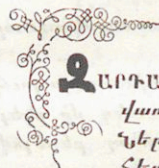 ԶԱՐԴԱ
վառ
նել